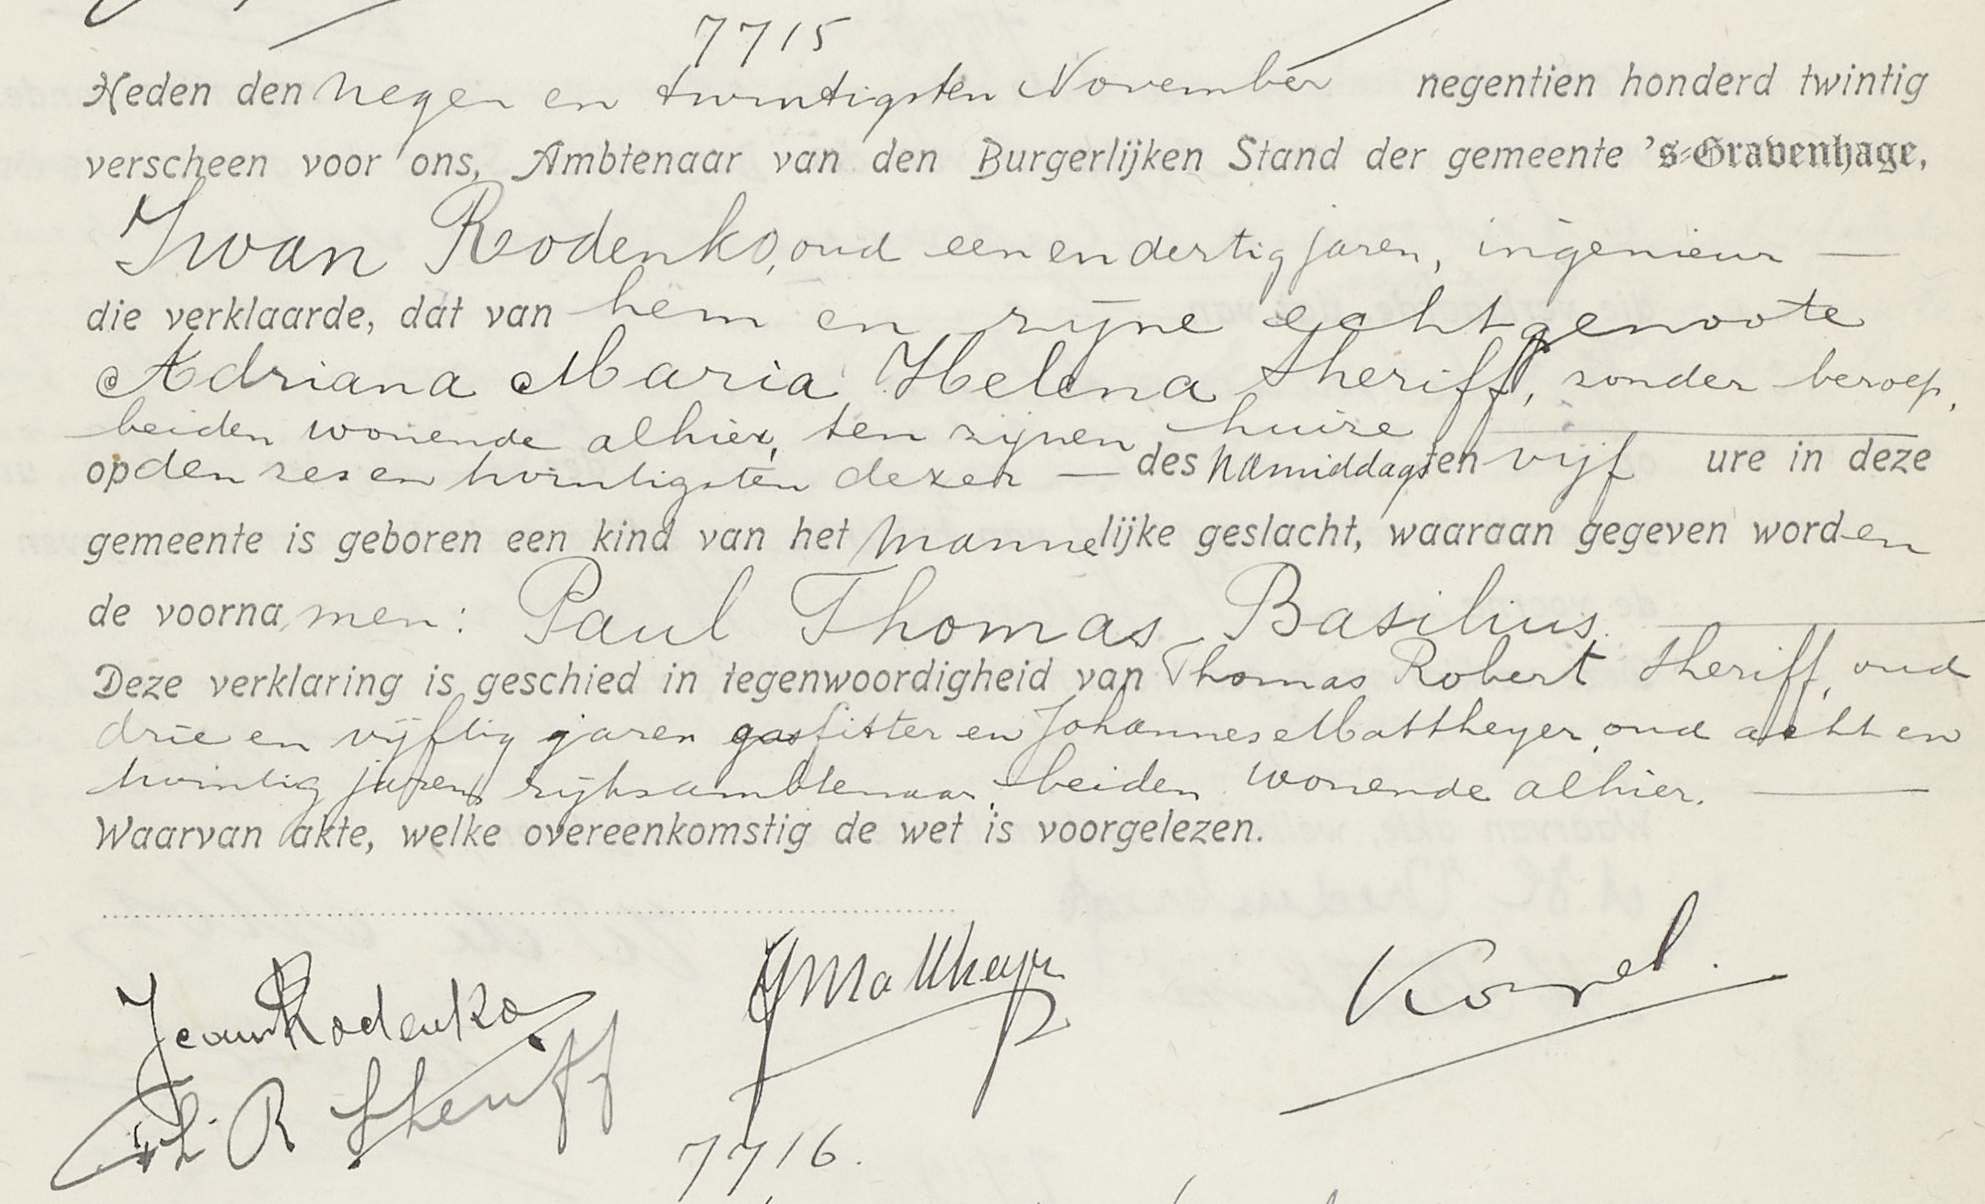 7715
Heden den negen en twintigsten November negentien honderd twintig
verscheen voor ons, Ambtenaar van den Burgerlijken Stand der gemeente 's-Gravenhage,
Iwan Rodenko, oud een en dertig jaren, ingenieur —
die verklaarde, dat van hem en zijne echtgenoote
Adriana Maria Helena Sheriff, zonder beroep,
beiden wonende alhier, ten zijnen huize —
op den zes en twintigsten dezer — des namiddags ten vijf ure in deze
gemeente is geboren een kind van het mannelijke geslacht, waaraan gegeven worden
de voornamen: Paul Thomas Basilius. —
Deze verklaring is geschied in tegenwoordigheid van Thomas Robert Sheriff, oud
drie en vijftig jaren gasfitter en Johannes Mattheyer, oud acht en
twintig jaren, rijksambtenaar, beiden wonende alhier. —
Waarvan akte, welke overeenkomstig de wet is voorgelezen.
Jean Rodenko
JMattheyer
Th. R Sheriff
7716.